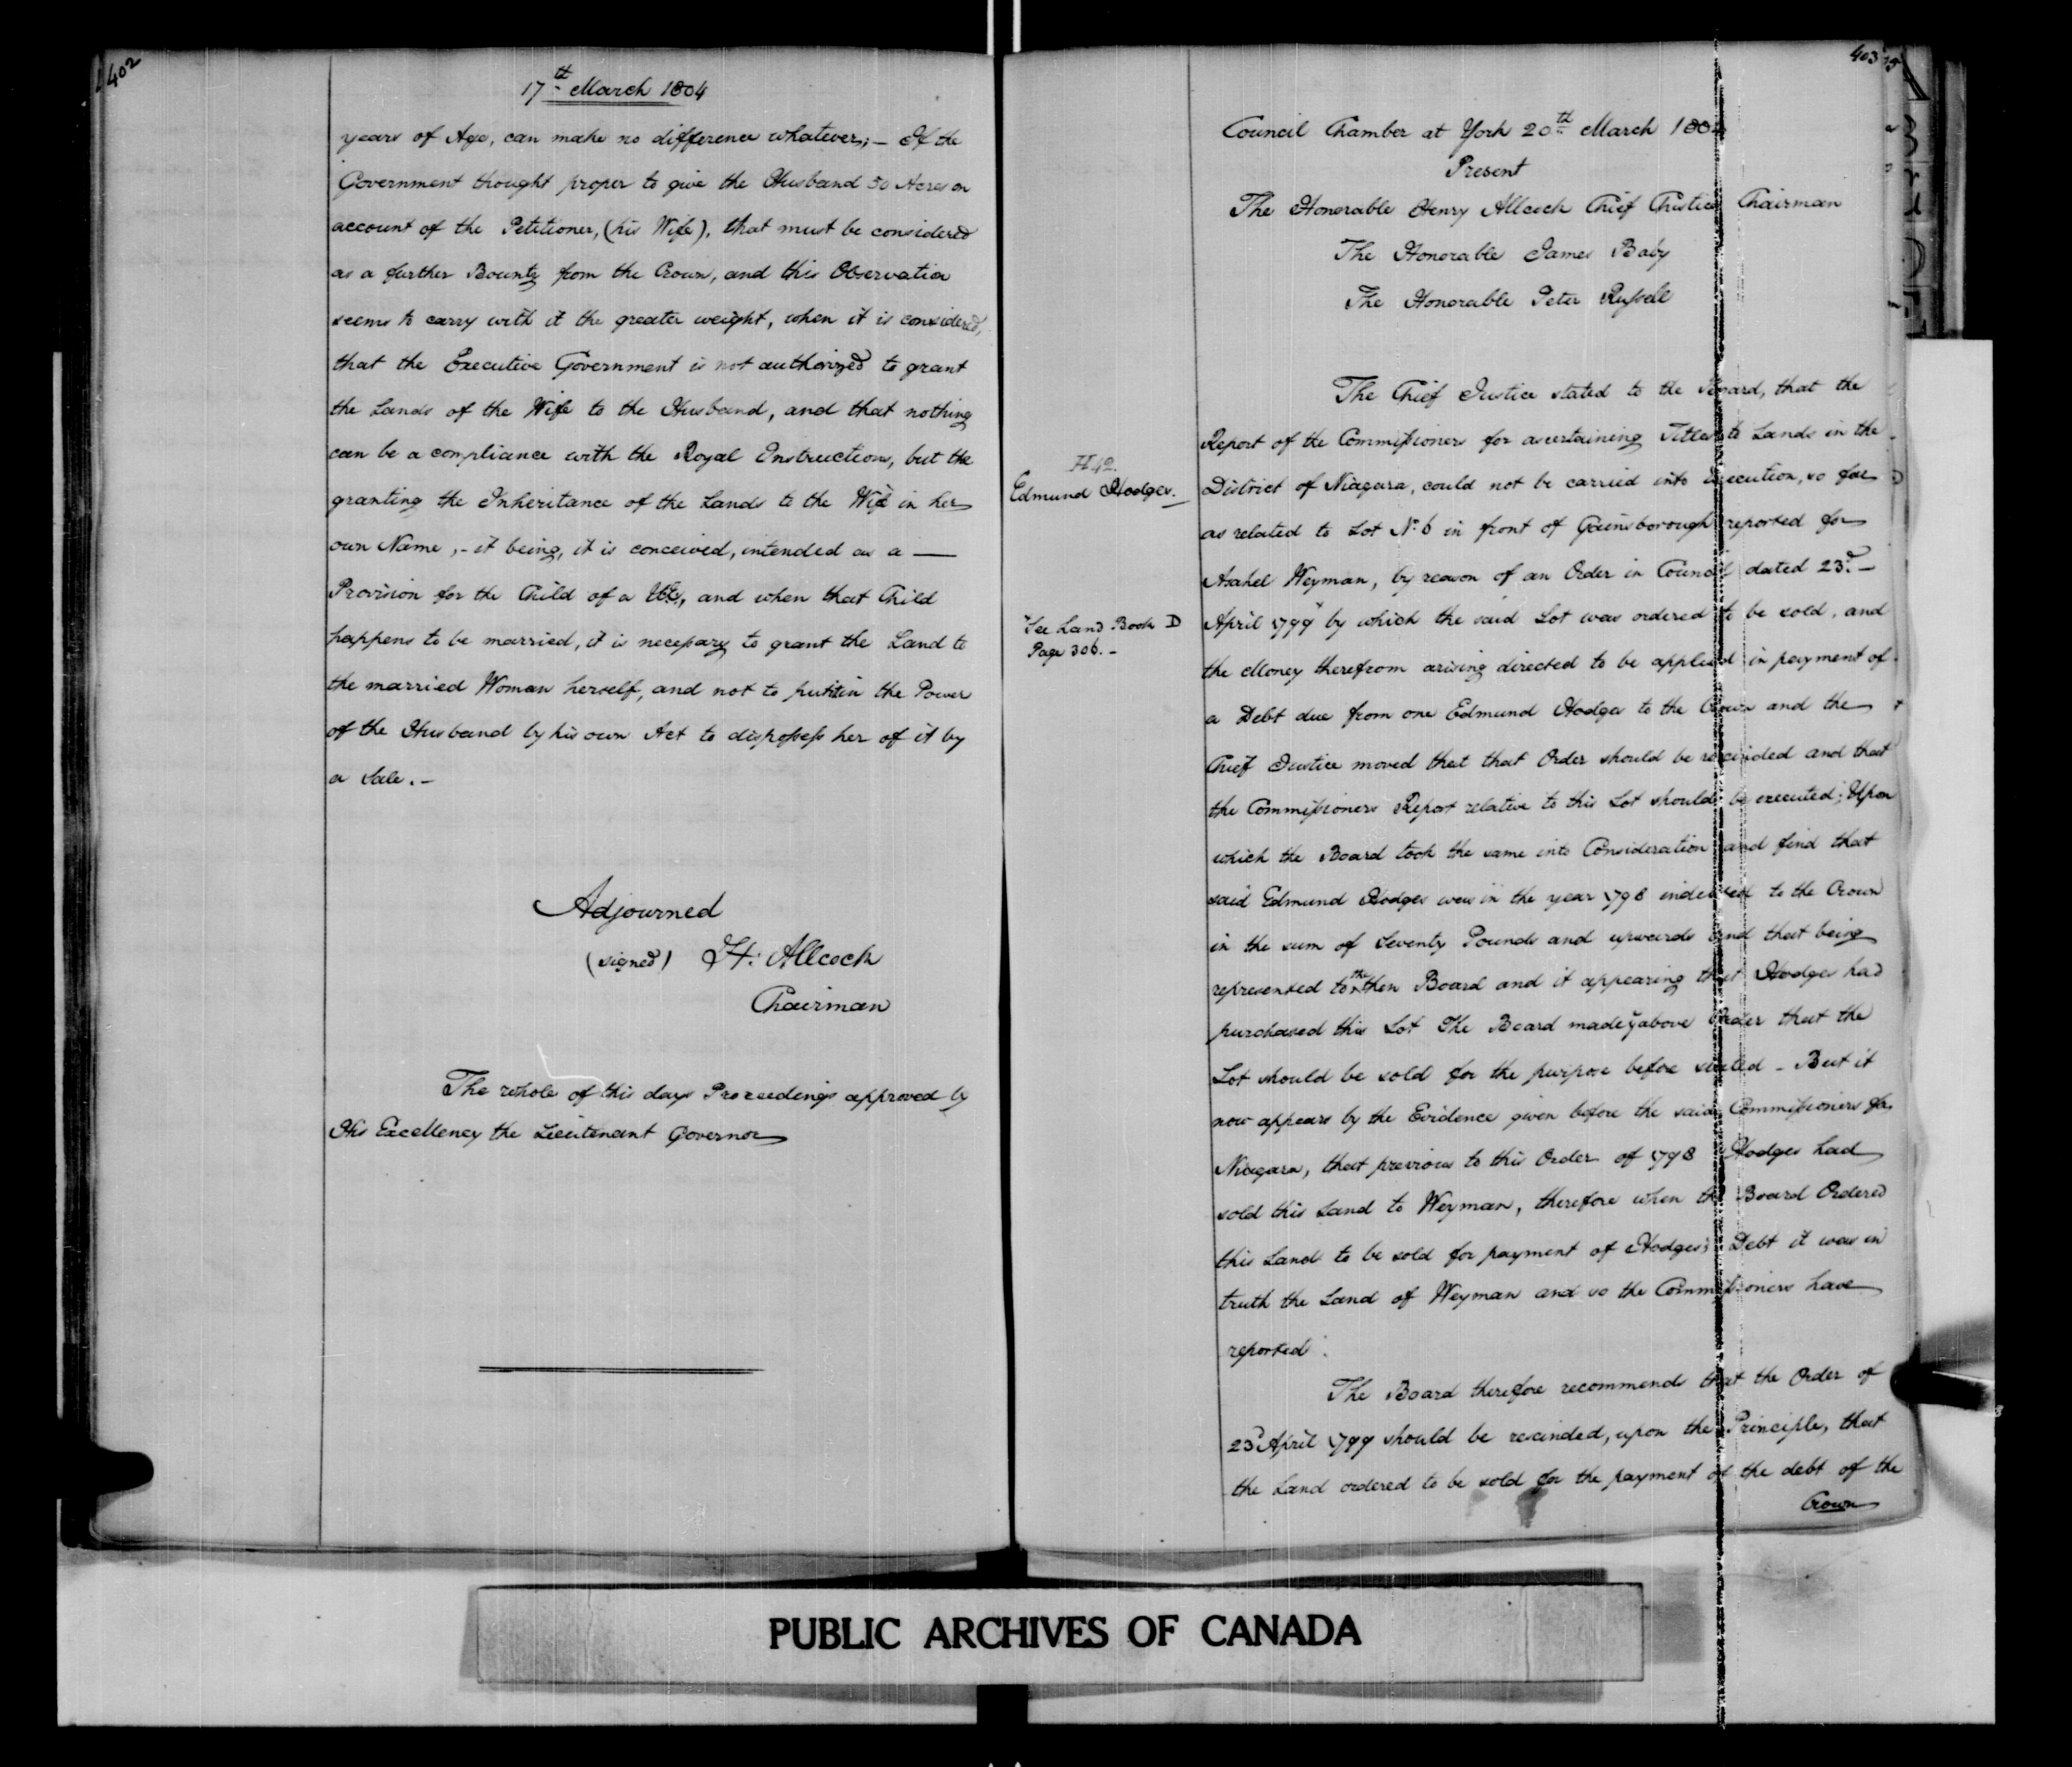 402
17th March 1804
years of Age, can make no difference whatever;– If the
Government thought proper to give the Husband 50 Acres on
account of the Petitioner, (his Wife), that must be considered
as a further Bounty from the Crown, and this Observation
seems to carry with it the greater weight, when it is considered,
that the Executive Government is not authorized to grant
the Lands of the Wife to the Husband, and that nothing
can be a compliance with the Royal Instructions, but the
granting the Inheritance of the Lands to the Wife in her
own Name,– it being, it is conceived, intended as a —
Provision for the Child of a UE, and when that Child
happens to be married, it is necessary to grant the Land to
the married Woman herself, and not to put it in the Power
of the Husband by his own Act to dispossess her of it by
a Sale.–
Adjourned
(signed) H: Allcock
Chairman
The whole of this days Proceedings approved by
His Excellency the Lieutenant Governor
403
Council Chamber at York 20th March 1804
Present
The Honorable Henry Allcock Chief Justice Chairman
The Honorable James Baby
The Honorable Peter Russell
The Chief Justice stated to the Board, that the
Report of the Commissioners for ascertaining Titles to Lands in the
H 42.
Edmund Hodges.
District of Niagara, could not be carried into Execution, so far
as related to Lot No. 6 in front of Gainsborough reported for
Asahel Weyman, by reason of an Order in Council dated 23d.–
See Land Book D
Page 306.–
April 1799 by which the said Lot was ordered to be sold, and
the Money therefrom arising directed to be applied in payment of
a Debt due from one Edmund Hodges to the Crown and the
Chief Justice moved that that Order should be rescinded and that
the Commissioners Report relative to this Lot should be executed; Upon
which the Board took the same into Consideration and find that
said Edmund Hodges was in the year 1798 indebted to the Crown
in the sum of Seventy Pounds and upwards and that being
represented to the then Board and it appearing that Hodges had
purchased this Lot The Board made ye above Order that the
Lot should be sold for the purpose before stated – But it
now appears by the Evidence given before the said Commissioners for
Niagara, that previous to this Order of 1798 Hodges had
sold this Land to Weyman, therefore when the Board Ordered
this Land to be sold for payment of Hodges's Debt it was in
truth the Land of Weyman and so the Commissioners have
reported.
The Board therefore recommend that the Order of
23d April 1799 should be rescinded, upon the Principle, that
the Land ordered to be sold for the payment of the debt of the
Crown
PUBLIC ARCHIVES OF CANADA